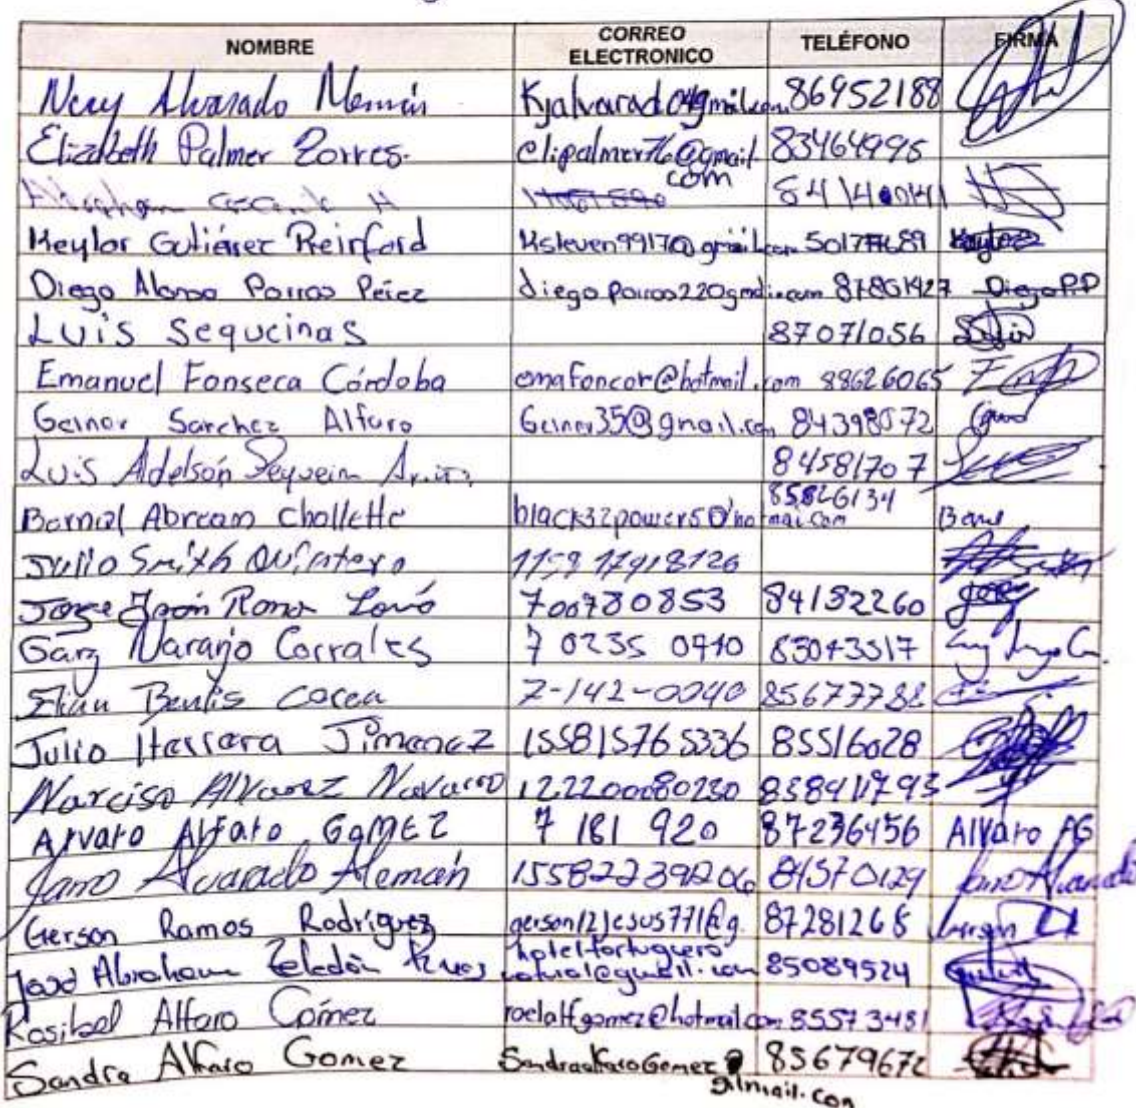 NOMBRE CORREO ELECTRONICO TELÉFONO FIRMA
Nery Alvarado Kjalvarad04gmail.com 86952188
Elizabeth Palmer Zorres. elipalmer76@gmail.com 83464995
H
Keylor Gutiérrez Reinford Ksteven99170@gmail.com
Diego Alonso Porras Pérez diego porras220gmail.com 87861427 Diego P.P
Luis Sequeinas 87071056
Emanuel Fonseca Córdoba emafoncor@hotmail.com 88626065
Geiner Sanchez Alfaro Geiner35@gmail.com 84398072
Luis Adelsón Sequeira 84581707
Bernial Abream Chollette black32power50hotmai.com 85826134
Julio Smith Quintero 1159 17918126
Jorge Roma 700780853 84132260
Gary Naranjo Corrales 7 0235 0740 83043517
7-142-0040 85677782
Julio Herrera Jimenez 155815765336 85516028
Narciso Alvarez Navarro 122200080230
Alvaro Alfaro GaMEZ 7 181 920 87236456 Alvaro AG
Alvarado Alemán 155822392206 84570129
Gerson Ramos Rodríguez gerson121esus771@g. 87281268
José Abraham Zeledón hotel tortuguero 85089524
Rosibel Alfaro Gómez roelalfgomez@hotmail.com 85573481
Sandra Alfaro Gomez SandraalfaroGomez 85679672